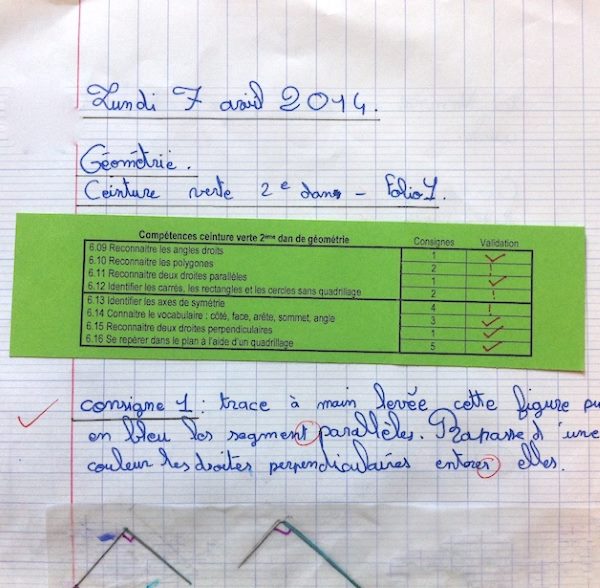 Lundi 7 avril 2014.
Géométrie.
Ceinture verte 2e dan - Folio 1.
Compétences ceinture verte 2ème dan de géométrie Consignes Validation
6.09 Reconnaitre les angles droits 1
6.10 Reconnaitre les polygones 2 !
6.11 Reconnaitre deux droites parallèles 1
6.12 Identifier les carrés, les rectangles et les cercles sans quadrillage 2 !
6.13 Identifier les axes de symétrie 4 !
6.14 Connaitre le vocabulaire : côté, face, arête, sommet, angle 3
6.15 Reconnaitre deux droites perpendiculaires 1
6.16 Se repérer dans le plan à l'aide d'un quadrillage 5
consigne 1 : trace à main levée cette figure pu
en bleu les segment parallèles. Rapasse d'une
couleur les droites perpendiculaires entores elles.